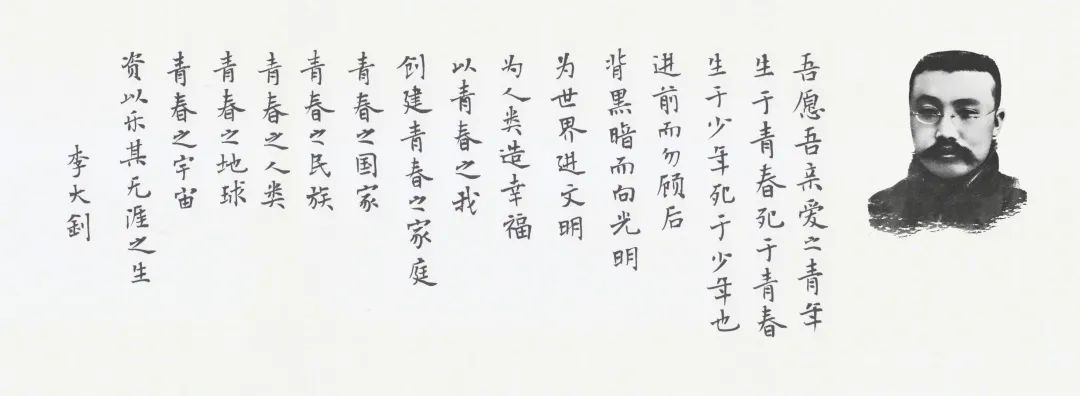 吾愿吾亲爱之青年
生于青春死于青春
生于少年死于少年也
进前而勿顾后
背黑暗而向光明
为世界进文明
为人类造幸福
以青春之我
创建青春之家庭
青春之国家
青春之民族
青春之人类
青春之地球
青春之宇宙
资以乐其无涯之生
李大钊